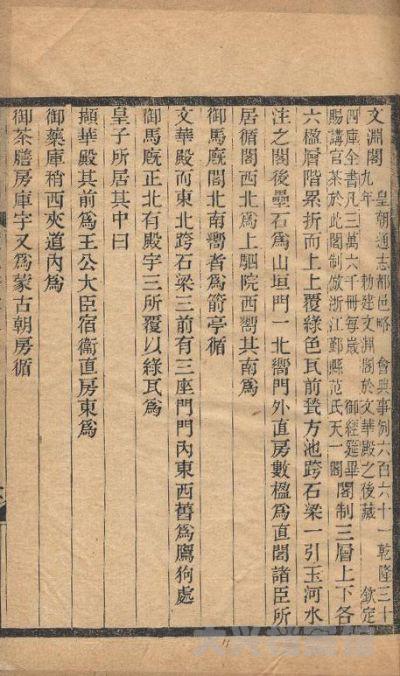 文淵閣 皇朝通志都邑略 會典事例六百六十一乾隆三十
九年 勅建文淵閣於文華殿之後藏 欽定
四庫全書凡三萬六千冊每歲 御經筵畢
賜講官茶於此閣制倣浙江鄞縣范氏天一閣
閣制三層上下各
六楹層階累折而上上覆綠色瓦前甃方池跨石梁一引玉河水
注之閣後疊石爲山垣門一北嚮門外直房數楹爲直閣諸臣所
居循閣西北爲上駟院西嚮其南爲
御馬廐閣北南嚮者爲箭亭循
文華殿而東北跨石梁三前有三座門門內東西舊爲鷹狗處
御馬廐正北有殿宇三所覆以綠瓦爲
皇子所居其中曰
擷華殿其前爲王公大臣宿衞直房東爲
御藥庫稍西夾道內爲
御茶膳房庫字又爲蒙古朝房循